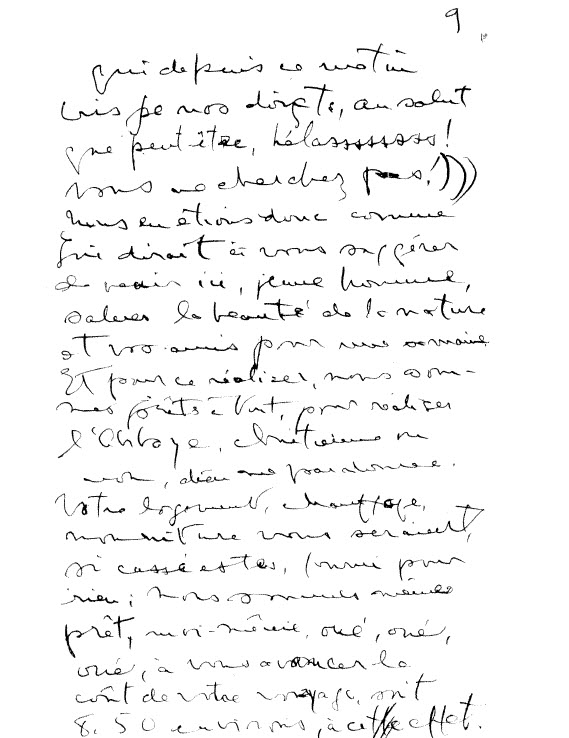 9
qui depuis ce matin
crispe nos doigts, au salut
que peut être, hélasssssssss!
vous ne cherchez pas!)))
Nous en étions donc comme
qui dirait à vous suggérer
de venir ici, jeune homme,
saluer la beauté de la nature
et vos amis pour une semaine
Et pour ce réaliser, nous som-
mes prêts à tout, pour réaliser
l'Abbaye, chrétienne ou
non, dieu me pardonne.
Votre logement, chauffage,
nourriture vous seraient,
si cassé estes, fourni pour
rien; nous sommes même
prêt, moi-même, oué, oué,
oué, à vous avancer le
coût de votre voyage, soit
8.50 environs, à cet effet.